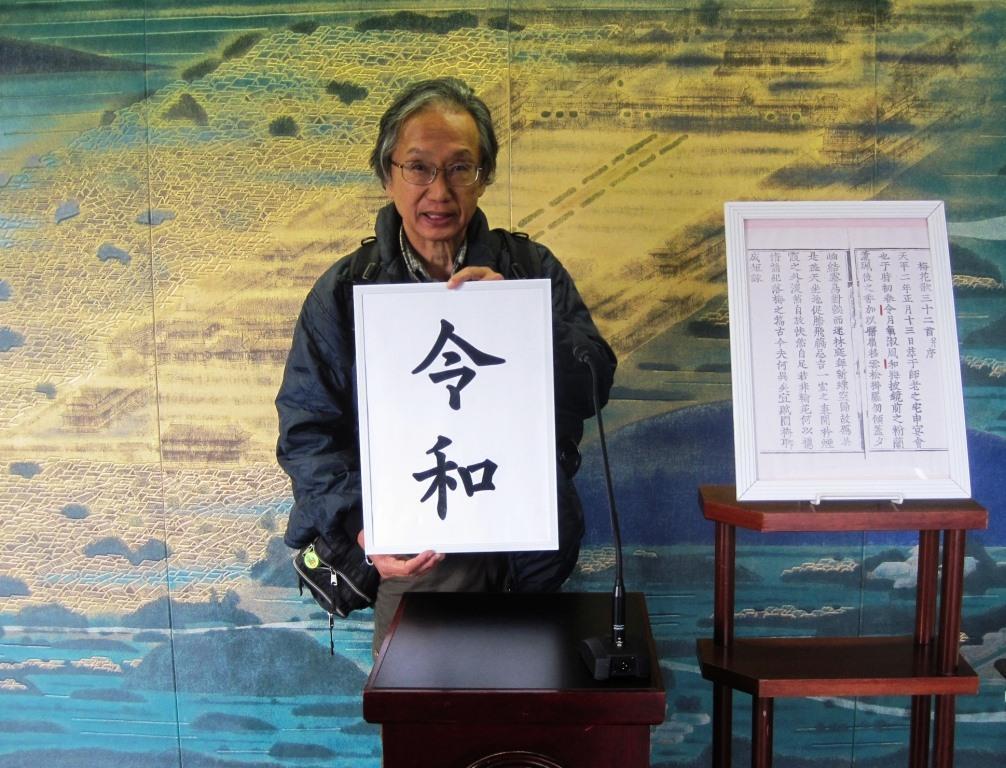 令和
梅花歌三十二首并序
天平二年正月十三日萃于帥老之宅申宴會
也于時初春令月氣淑風和梅披鏡前之粉蘭
薫珮後之香加以曙嶺移雲松掛羅而傾盖夕
岫結霧鳥封縠而迷林庭舞新蝶空歸故鴈於是
盖天坐地促膝飛觴忘言一室之裏開衿煙
霞之外淡然自放快然自足若非翰苑何以攄
情請紀落梅之篇古今夫何異矣宜賦園梅聊
成短詠